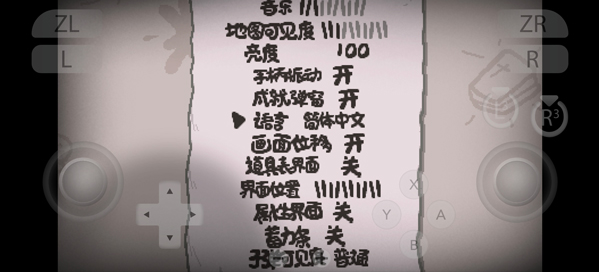 ZL
ZR
L
R
音乐
地图可见度
亮度 100
手柄振动 开
成就弹窗 开
语言 简体中文
画面位移 开
道具表界面 关
界面位置
属性界面 关
蓄力条 关
可见度 普通
L
R³
X
Y
A
B